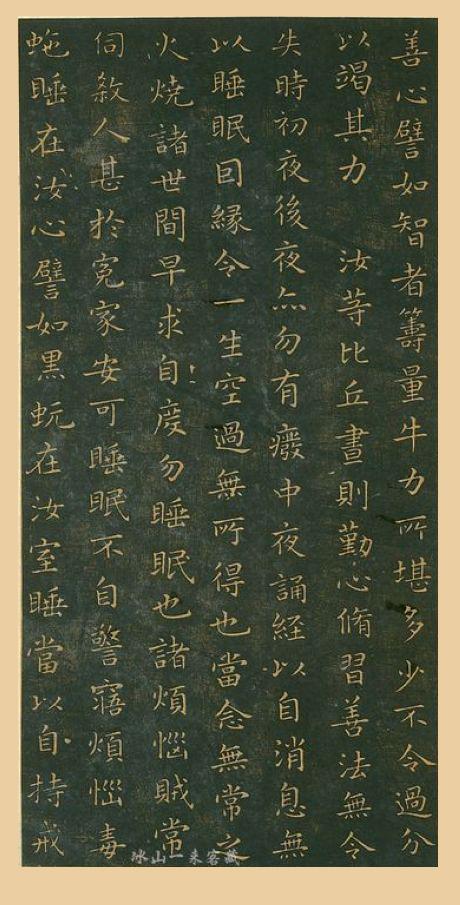 善心譬如智者籌量牛力所堪多少不令過分
以竭其力 汝等比丘晝則勤心脩習善法無令
失時初夜後夜亦勿有癈中夜誦經以自消息無
以睡眠回緣令一生空過無所得也當念無常之
火燒諸世間早求自度勿睡眠也諸煩惱賊常
伺煞人甚於寃家安可睡眠不自警寤煩惱毒
虵睡在汝心譬如黑蚖在汝室睡當以自持戒
冰山一来客藏